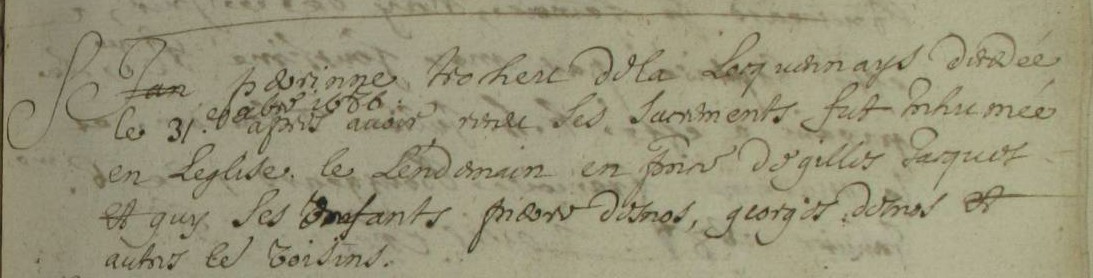 Jan perrinne trohert de la Locquennays décédée
le 31e 8abre 1686 apres avoir receu ses sacrements fut inhumée
en l'eglise le lendemain en pnce de gilles Jacques
et guy ses enfants pierre desnos, georges desnos et
autres les voisins.